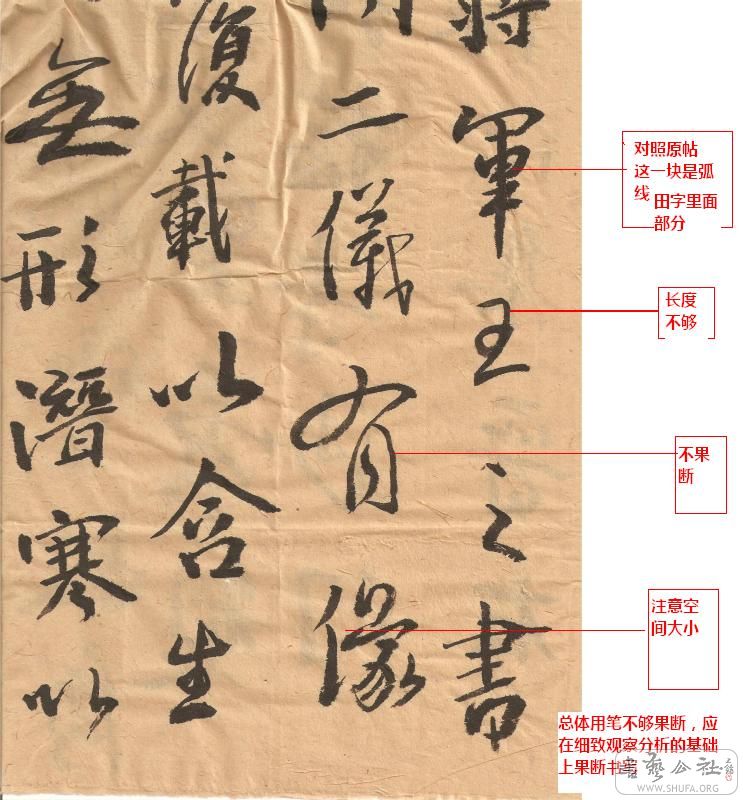 將軍王之書
二儀有像
復載以含生
無形潛寒以
对照原帖
这一块是弧
线
田字里面
部分
长度
不够
不果
断
注意空
间大小
总体用笔不够果断，应
在细致观察分析的基础
上果断书
藝公社
WWW.SHUFA.ORG